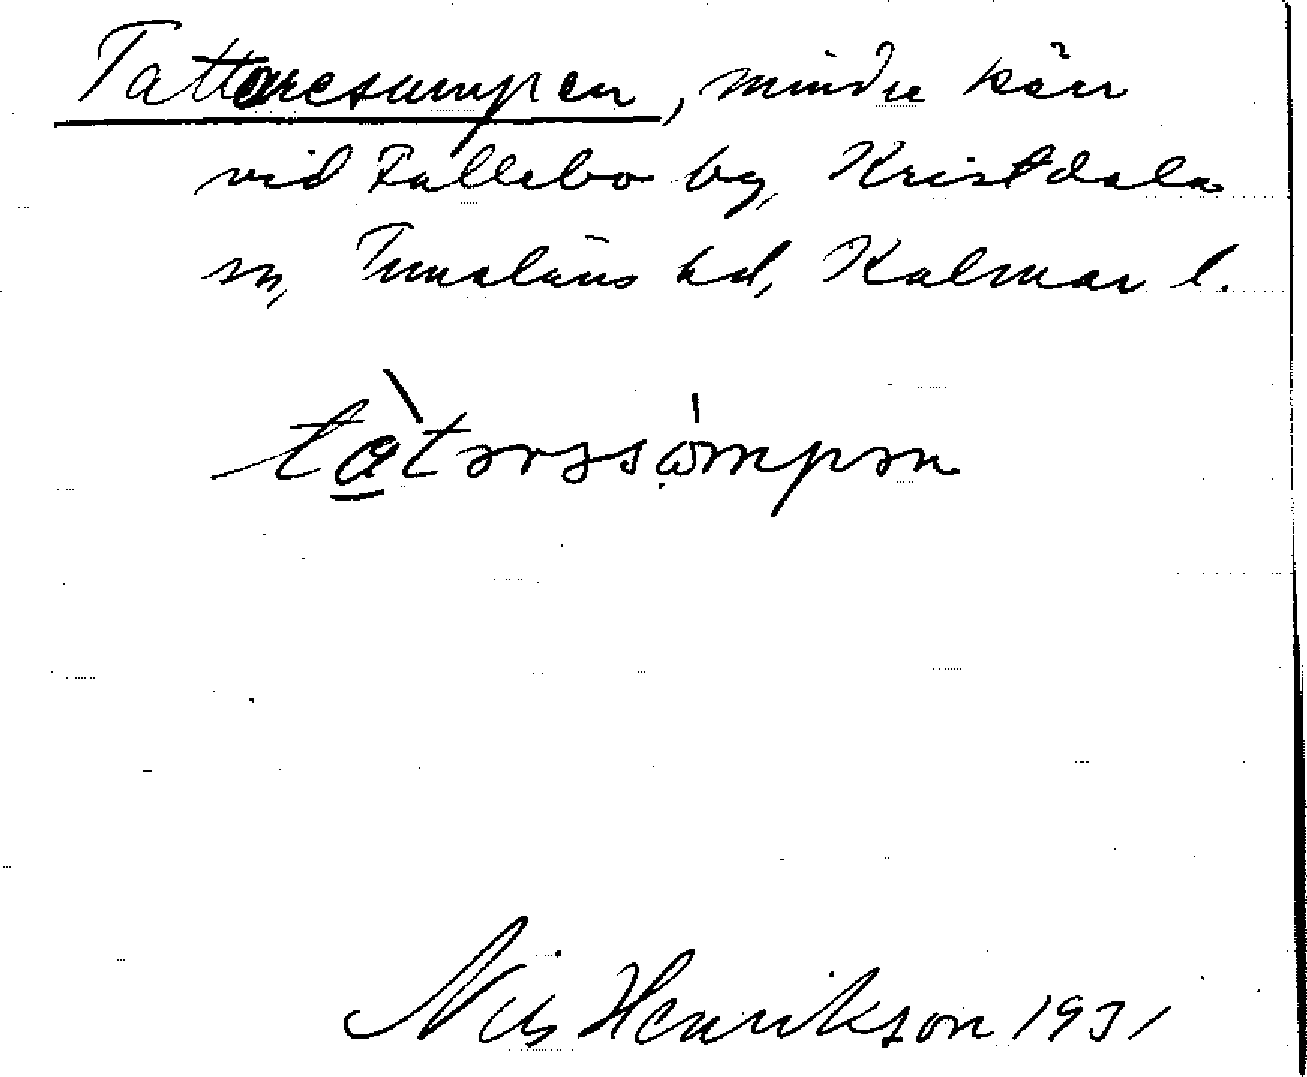 Tattaresumpen, mindre kärr
vid Fallebo by, Kristdala
sn, Tunaläns hd, Kalmar l.
tàtərəsɷmpən
Nils Henrikson 1931